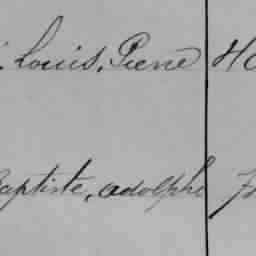 Louis, Pierre
Baptiste, adolphe